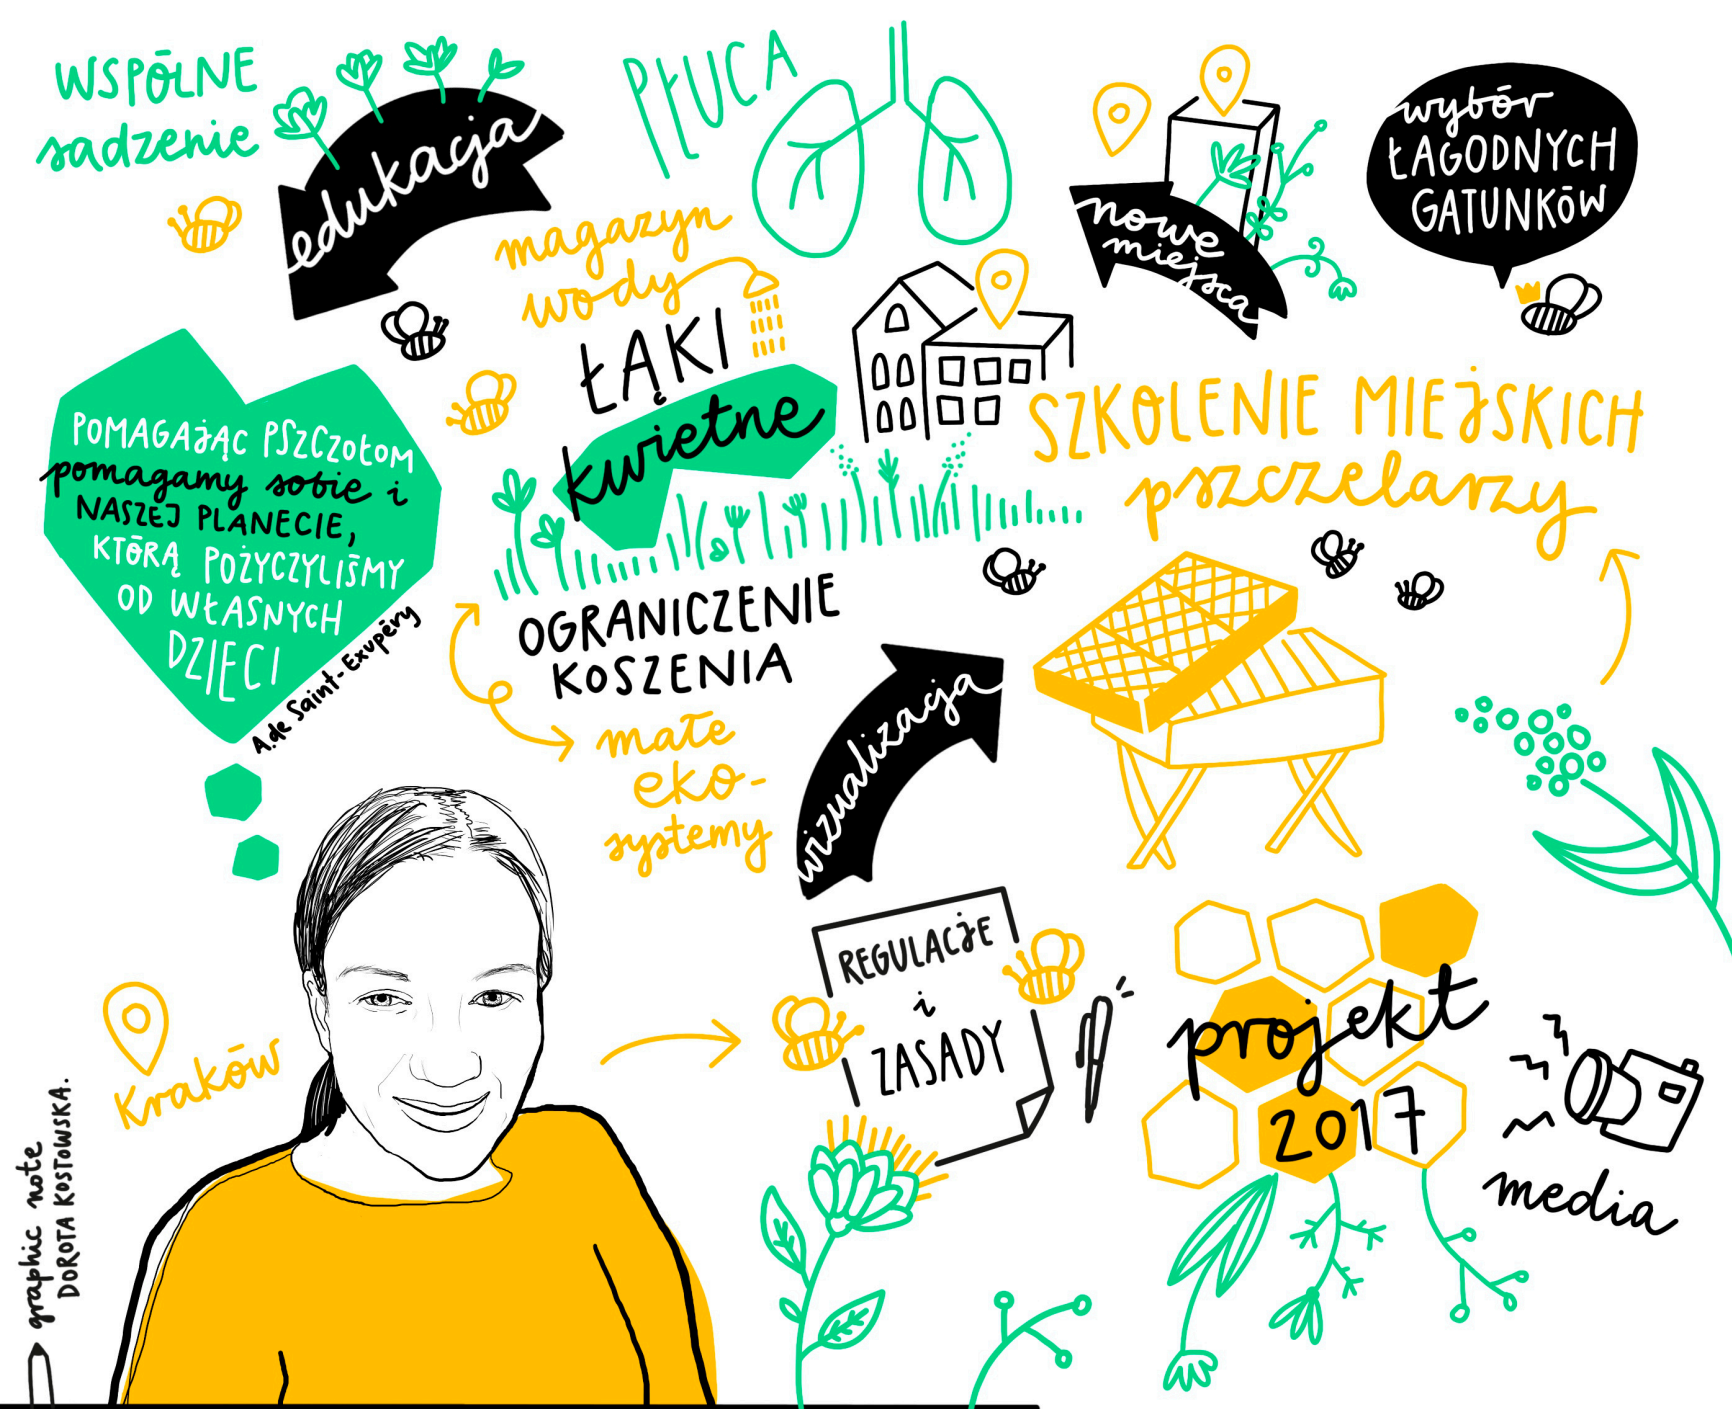 WSPÓLNE
sadzenie
edukacja
PŁUCA
magazyn
wody
nowe
miejsca
wybór
ŁAGODNYCH
GATUNKÓW
ŁĄKI
kwietne
SZKOLENIE MIEJSKICH
pszczelarzy
POMAGAJĄC PSZCZOŁOM
pomagamy sobie i
NASZEJ PLANECIE,
KTÓRĄ POŻYCZYLIŚMY
OD WŁASNYCH
DZIECI
A.de Saint-Exupéry
OGRANICZENIE
KOSZENIA
małe
eko-
systemy
wizualizacja
REGULACJE
i
ZASADY
projekt
2017
media
Kraków
graphic note
DOROTA KOSTOWSKA.